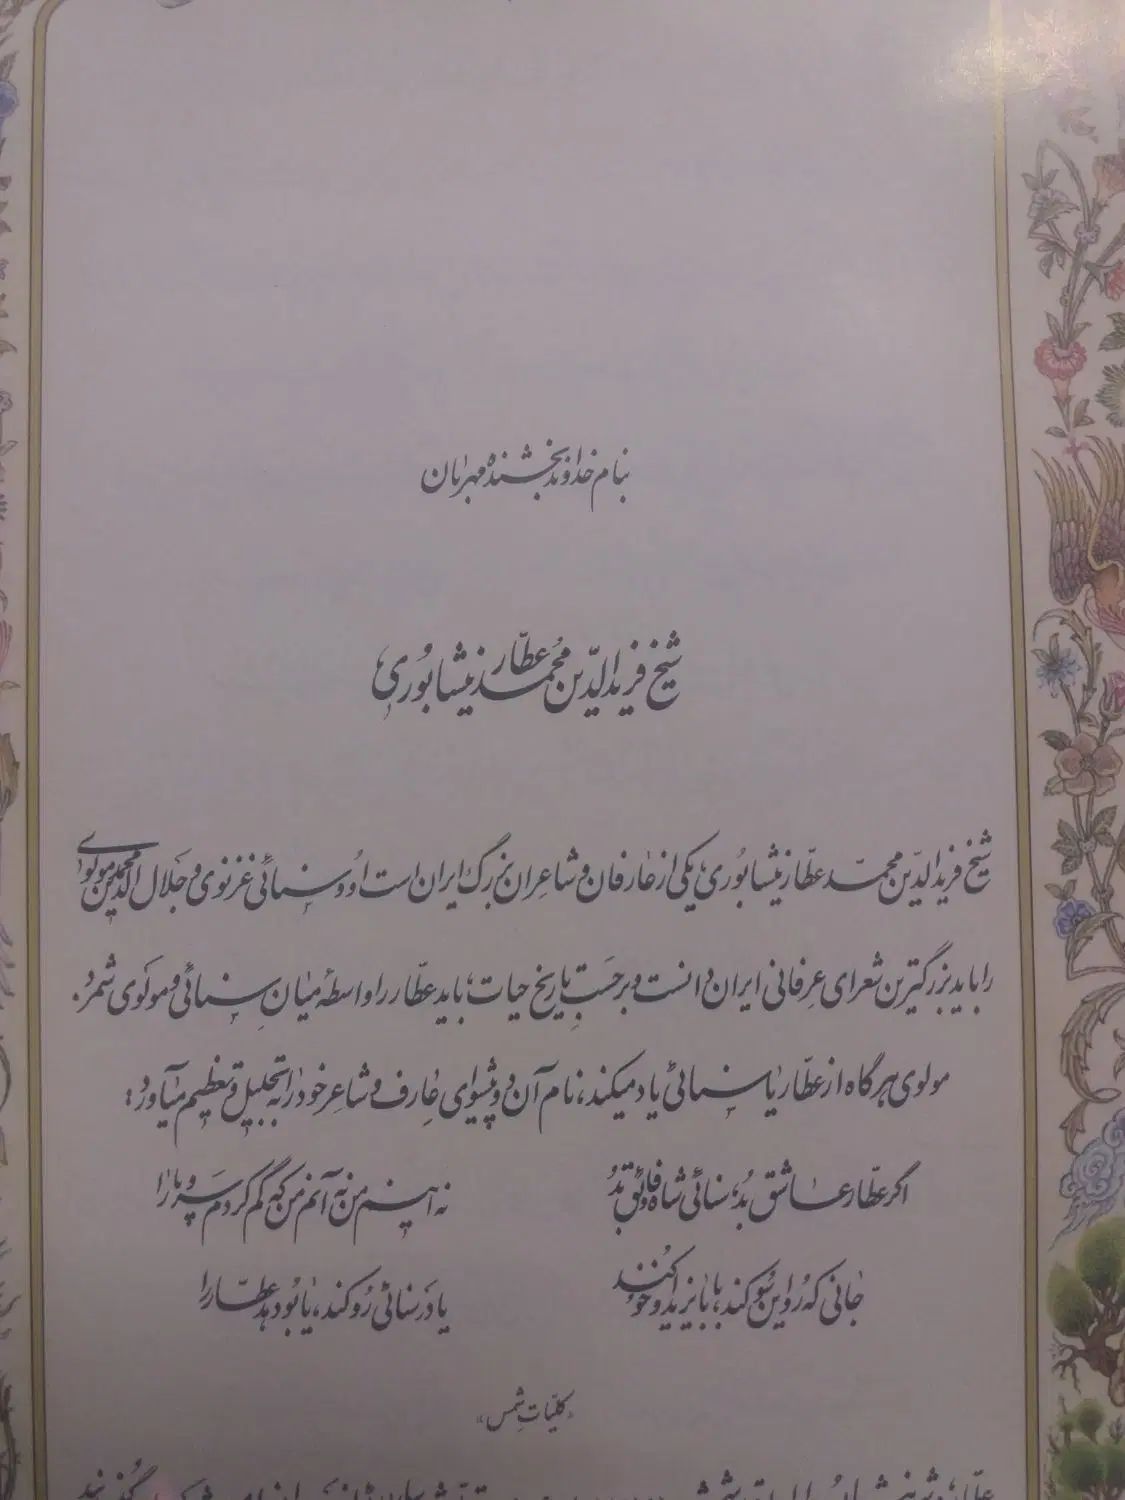 بنام خداوند بخشنده مهربان
شیخ فریدالدّین محمّد عطّار نیشابُوری
شیخ فریدالدّین محمّد عطّار نیشابُوری، یکی از عارفان و شاعران بزرگ ایران است او و سنائی غزنوی و جَلال الدّین محمّد مولوی
را باید بزرگترین شعرای عرفانی ایران دانست و برحَسَبِ تاریخ حیات، باید عطّار را واسطهٔ میانِ سنائی و مولَوی شمُرد.
مولوی هرگاه از عطّار یا سنائی یاد میکند، نام آن دو پیشوای عارِف و شاعِر خود را به تجلیل و تعظیم میآورد:
اگر عطّار عاشق بُد، سنائی شاه و فائق بُد
نه اینم من نه آنم من که گم کردم سَر و پا را
جانی که رُو این سُو کند، با بایزید او خُو کُنند
یا دَر سنائی رُو کند، یا بُو دهد عطّار را
«کلیّات شمس»